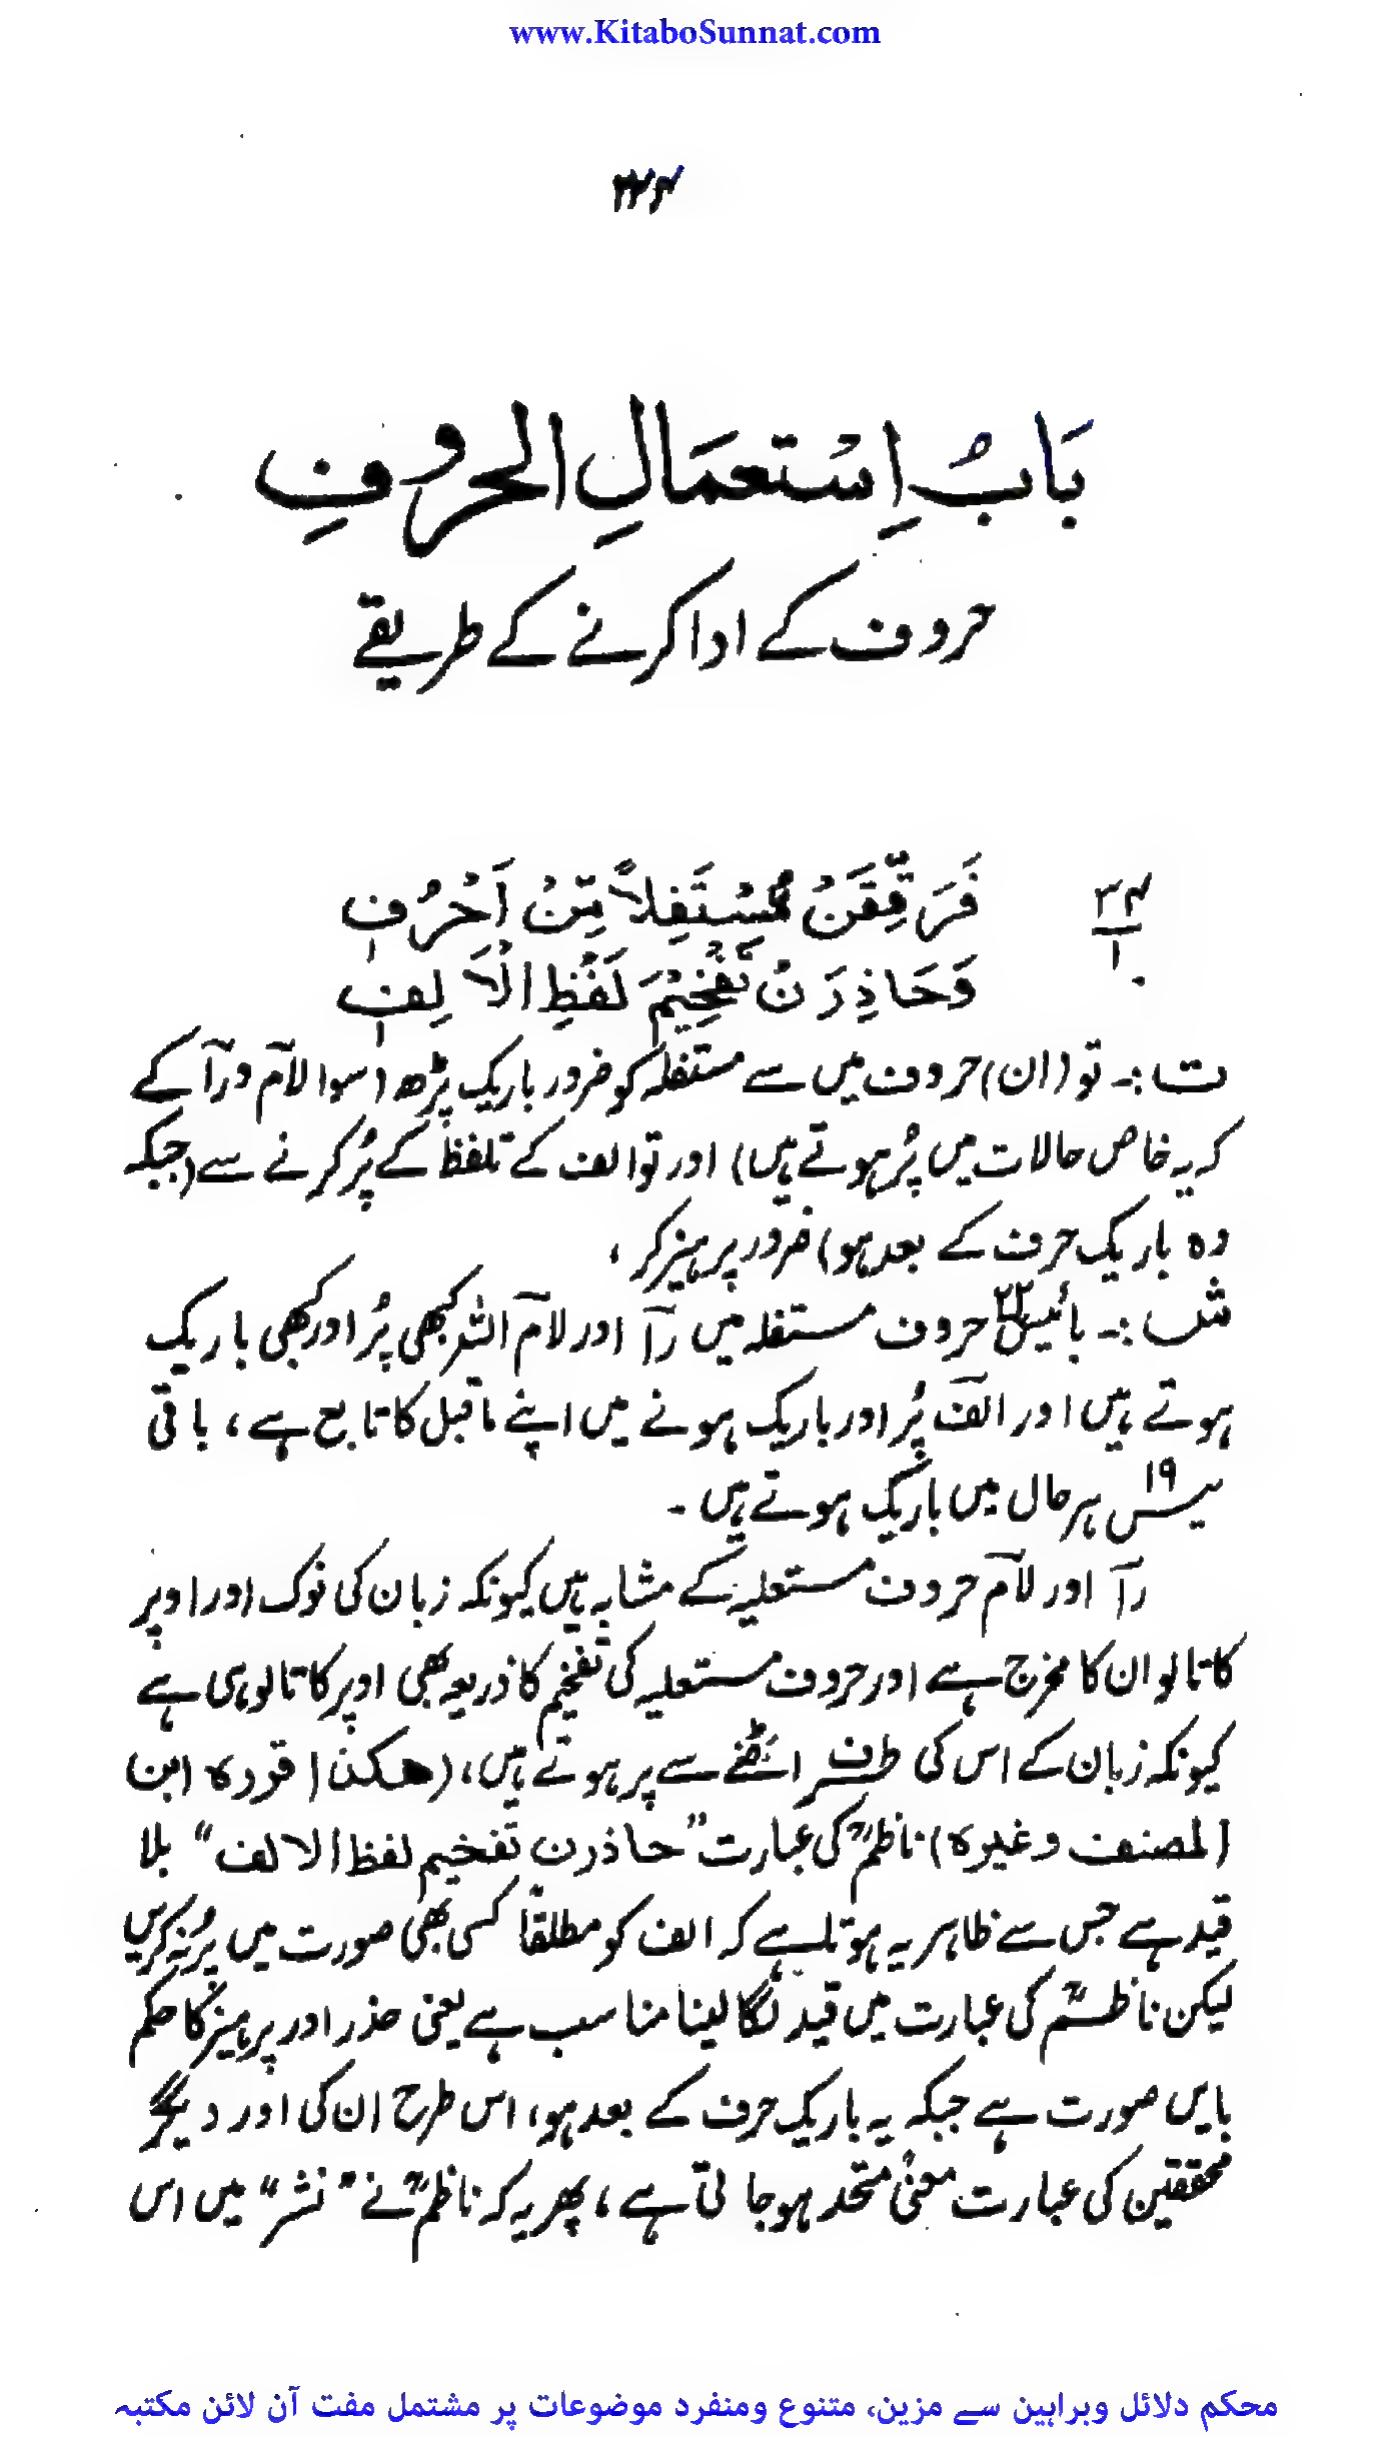 www.KitaboSunnat.com
بَابُ اِسْتعمَالِ الحروفِ
حروف کے ادا کرنے کے طریقے
۳۴
۱
فَرَقِّقَنْ مُّسْتَفِلاً مِّنْ اَحْرُفٖ
وَحَاذِرَنْ تَفْخِيْمَ لَفْظِ الْاَلِفٖ
ت :۔ تو (ان) حروف میں سے مستفلہ کو ضرور باریک پڑھ (سوا لآم و رآ کے
کہ یہ خاص حالات میں پُر ہوتے ہیں) اور تو الف کے تلفظ کے پُر کرنے سے (جبکہ
وہ باریک حرف کے بعد ہو) ضرور پرہیز کر ،
ش :۔ بائیس۲۲ حروف مستفلہ میں رآ اور لآم اللہ کبھی پُر اور کبھی باریک
ہوتے ہیں اور الفؔ پُر اور باریک ہونے میں اپنے ماقبل کا تابع ہے ، باقی
۱۹ ہر حال میں باریک ہوتے ہیں ۔
رآ اور لآم حروف مستعلیہ کے مشابہ ہیں کیونکہ زبان کی نوک اور اوپر
کا تالو ان کا مخرج ہے اور حروف مستعلیہ کی تفخیم کا ذریعہ بھی اوپر کا تالو ہی ہے
کیونکہ زبان کے اس کی طرف اٹھنے سے پر ہوتے ہیں ، (ھکذا قررہ ابن
المصنف وغیرہ) ناظمؒ کی عبارت ”حاذرن تفخیم لفظ الالف“ بلا
قید ہے جس سے ظاہر یہ ہوتا ہے کہ الف کو مطلقاً کسی بھی صورت میں پُر نہ کریں
لیکن ناظمؒ کی عبارت میں قید لگا لینا مناسب ہے یعنی حذر اور پرہیز کا حکم
بایں صورت ہے جبکہ یہ باریک حرف کے بعد ہو، اس طرح ان کی اور دیگر
محققین کی عبارت معنیً متحد ہو جاتی ہے ، پھر یہ کہ ناظمؒ نے ”نشر“ میں اس
محکم دلائل وبراہین سے مزین، متنوع ومنفرد موضوعات پر مشتمل مفت آن لائن مکتبہ